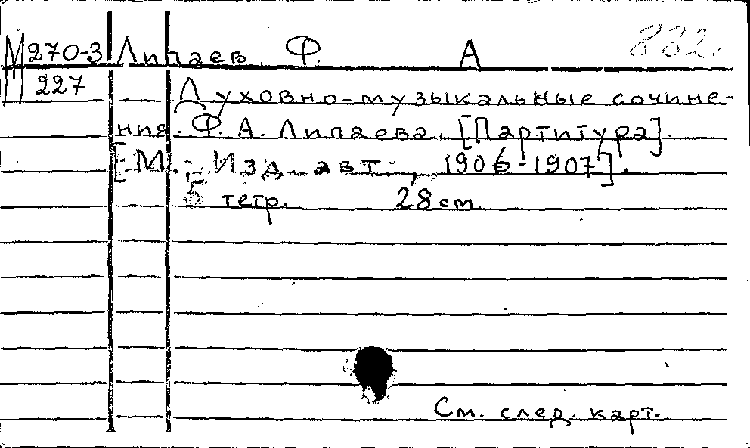 М270-3 Липаев Ф. А 832.
227 Духовно-музыкальные сочине-
ния Ф. А. Липаева. [Партитура].
[М., Изд. авт., 1906-1907].
5 тетр. 28 см.
См. след. карт.